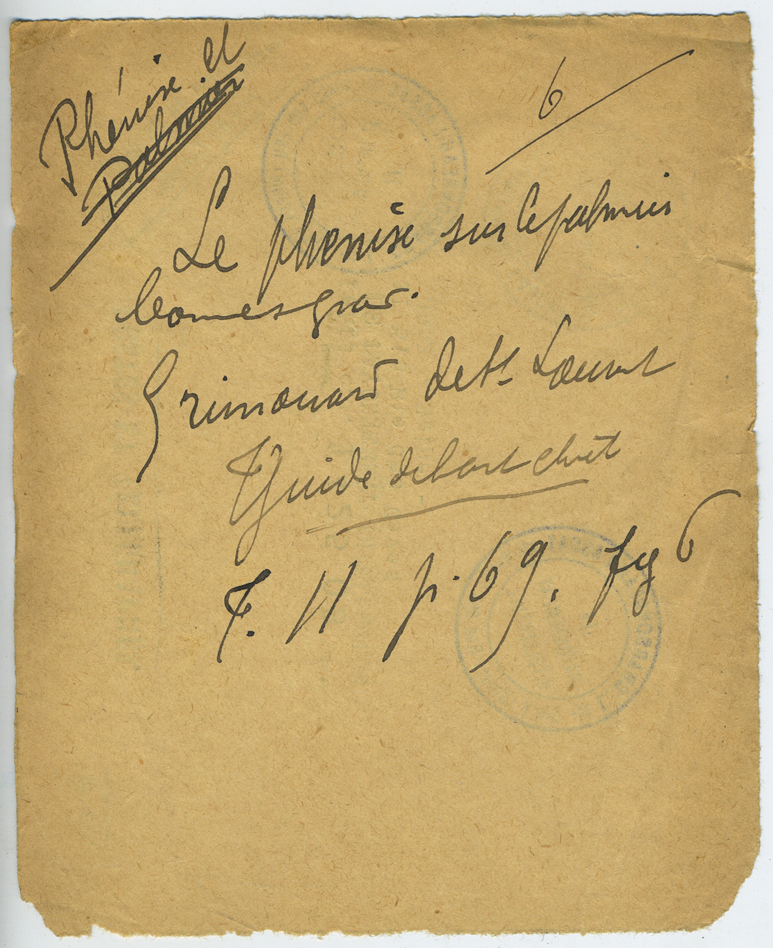 Phénise et
Palmier
6
Le phenise sur le palmier
Grimouard de St Laurent
Guide de l'art chrét
T. II p. 69. fig 6